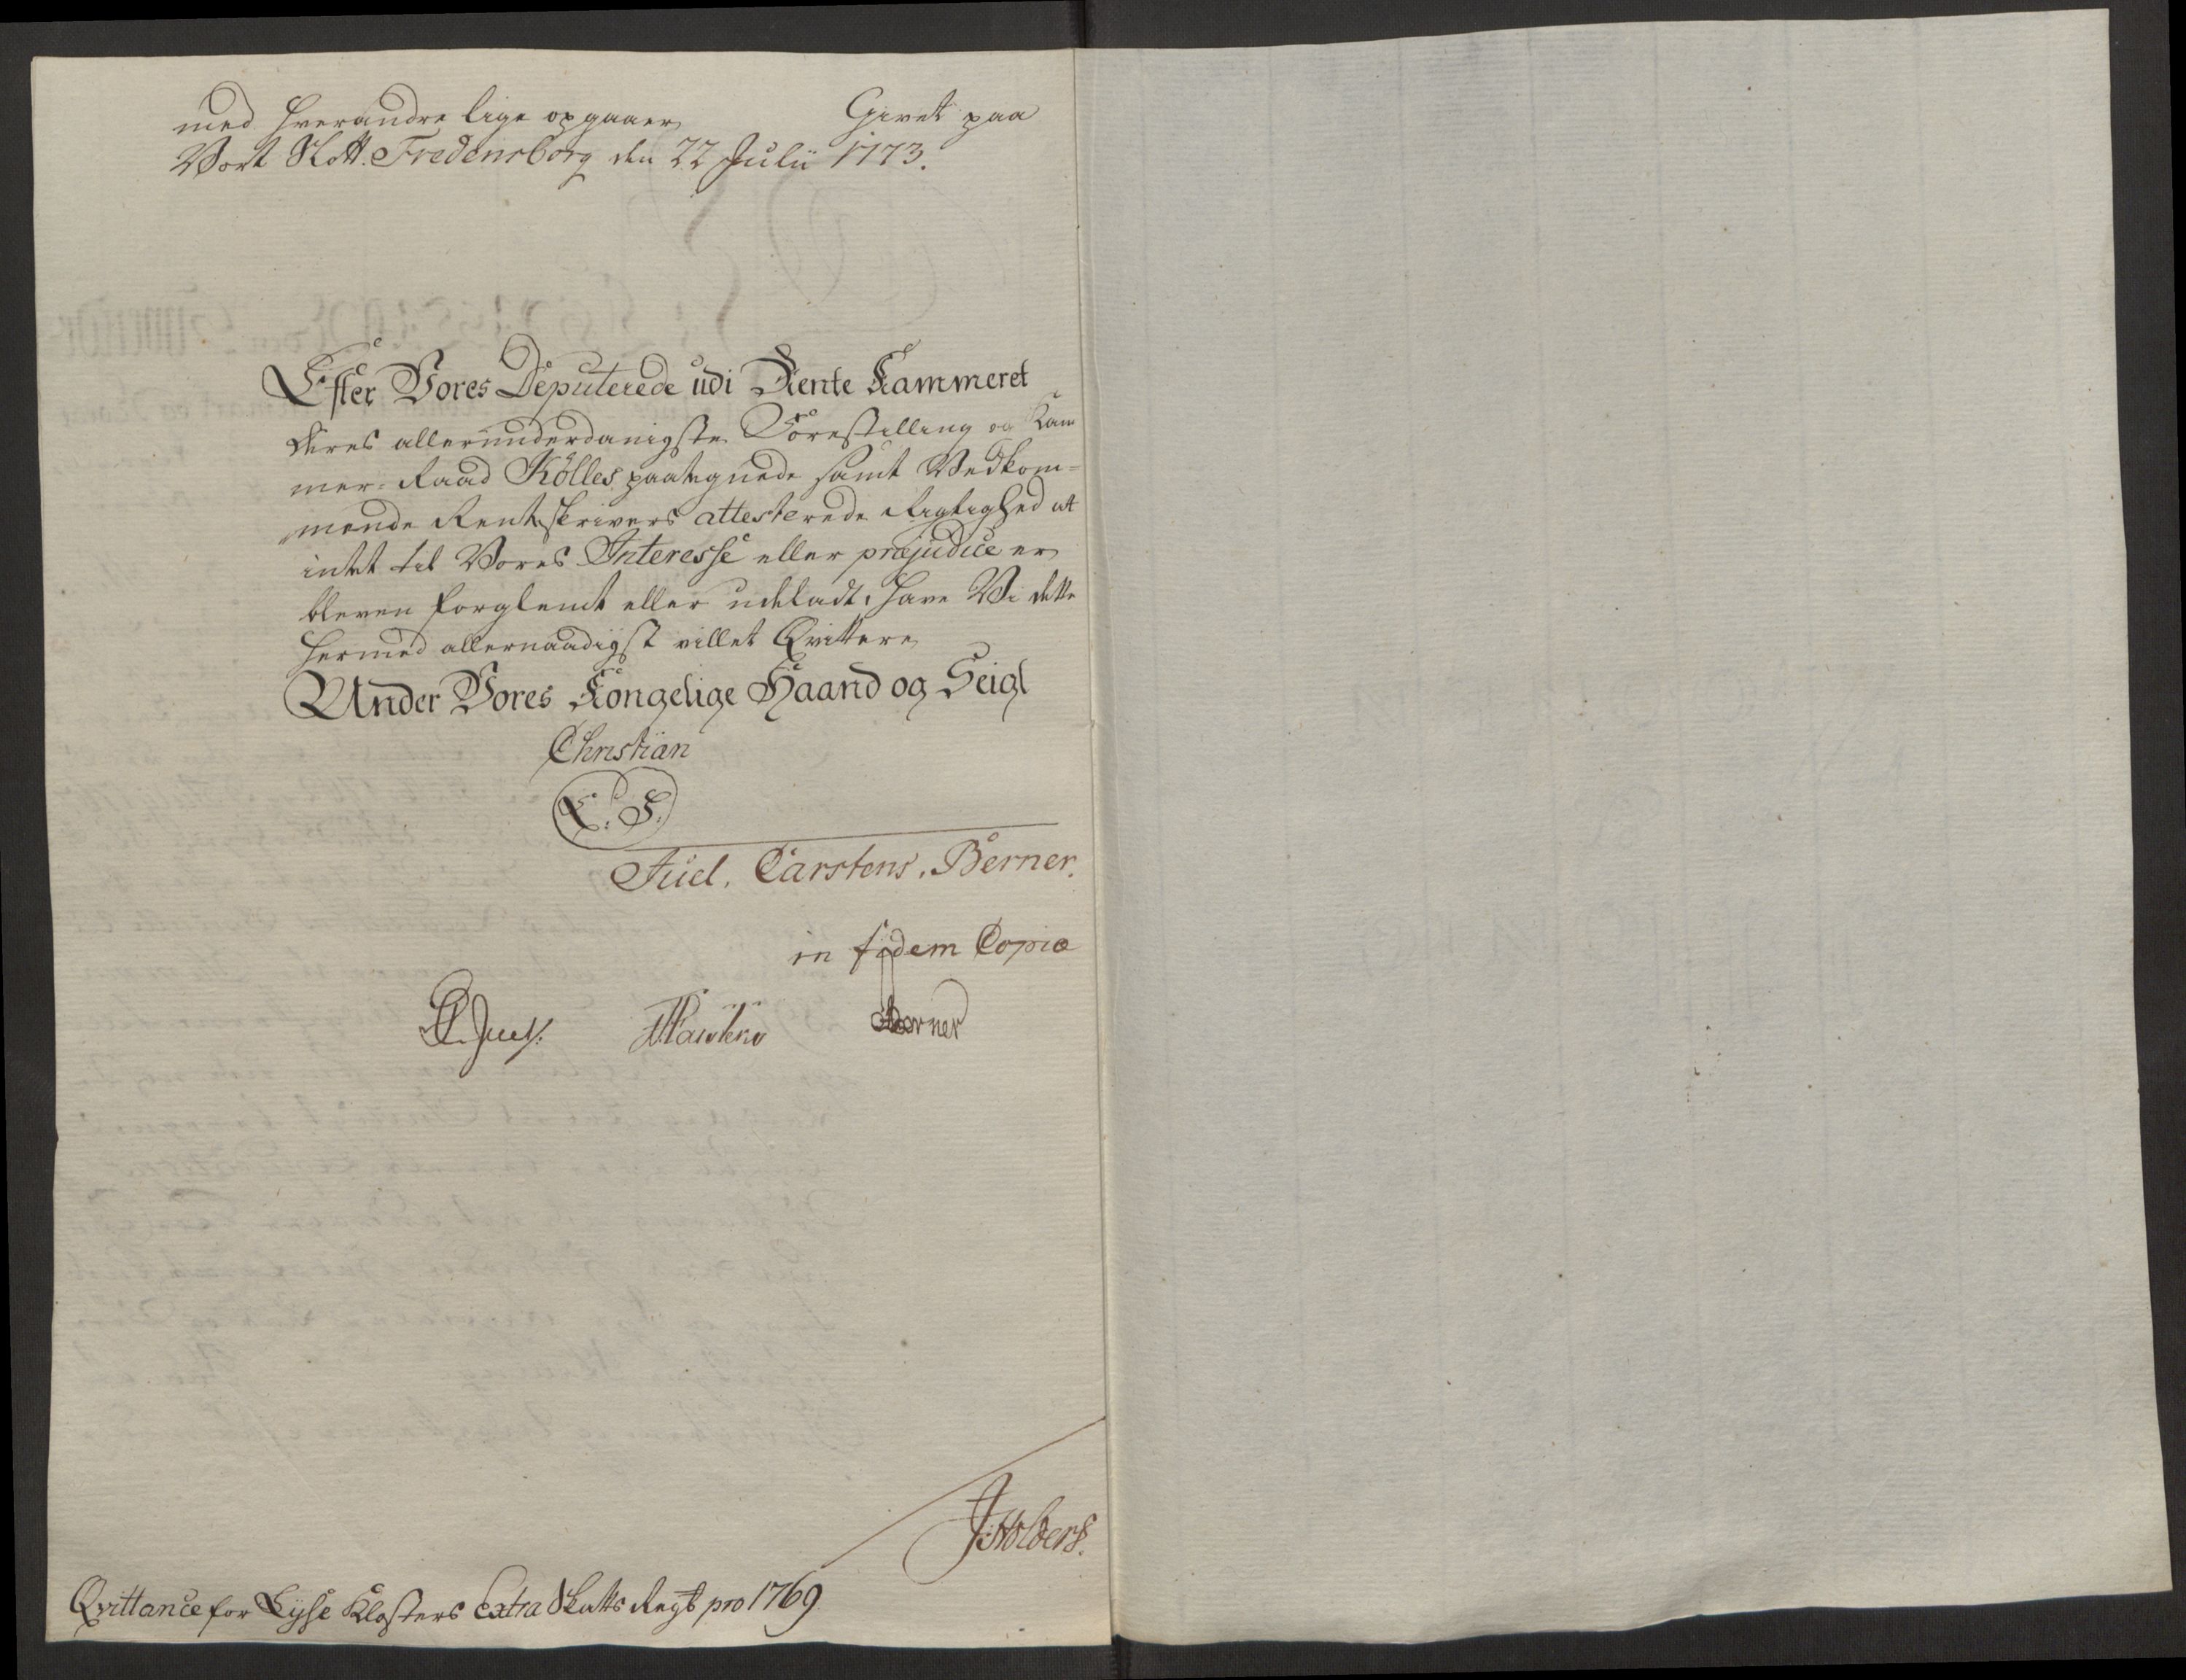 med hverandre lige opgaaer Givet paa
Vort Slott Fredensborg den 22 Julii 1773.
Efter Vores Deputerede udi Rente Kammeret
deres allerunderdanigste Forestilling og Kam
mer-Raad Kölles paategnede samt Vedkom=
mende Rentskrivers attesterede Rigtighed at
intet til Vores Interesse eller præjudice er
bleven forglemt eller udeladt, have Vi dette
hermed allernaadigst villet Qvittere
Under Vores Kongelige Haand og Seigl
Christian
L. S.
Juel. Carstens. Berner.
in fidem Copiæ
Juel. Carstens Berner
Holbers.
Qvittance for Lyse Klosters Extra Skatts Regsb pro 1769